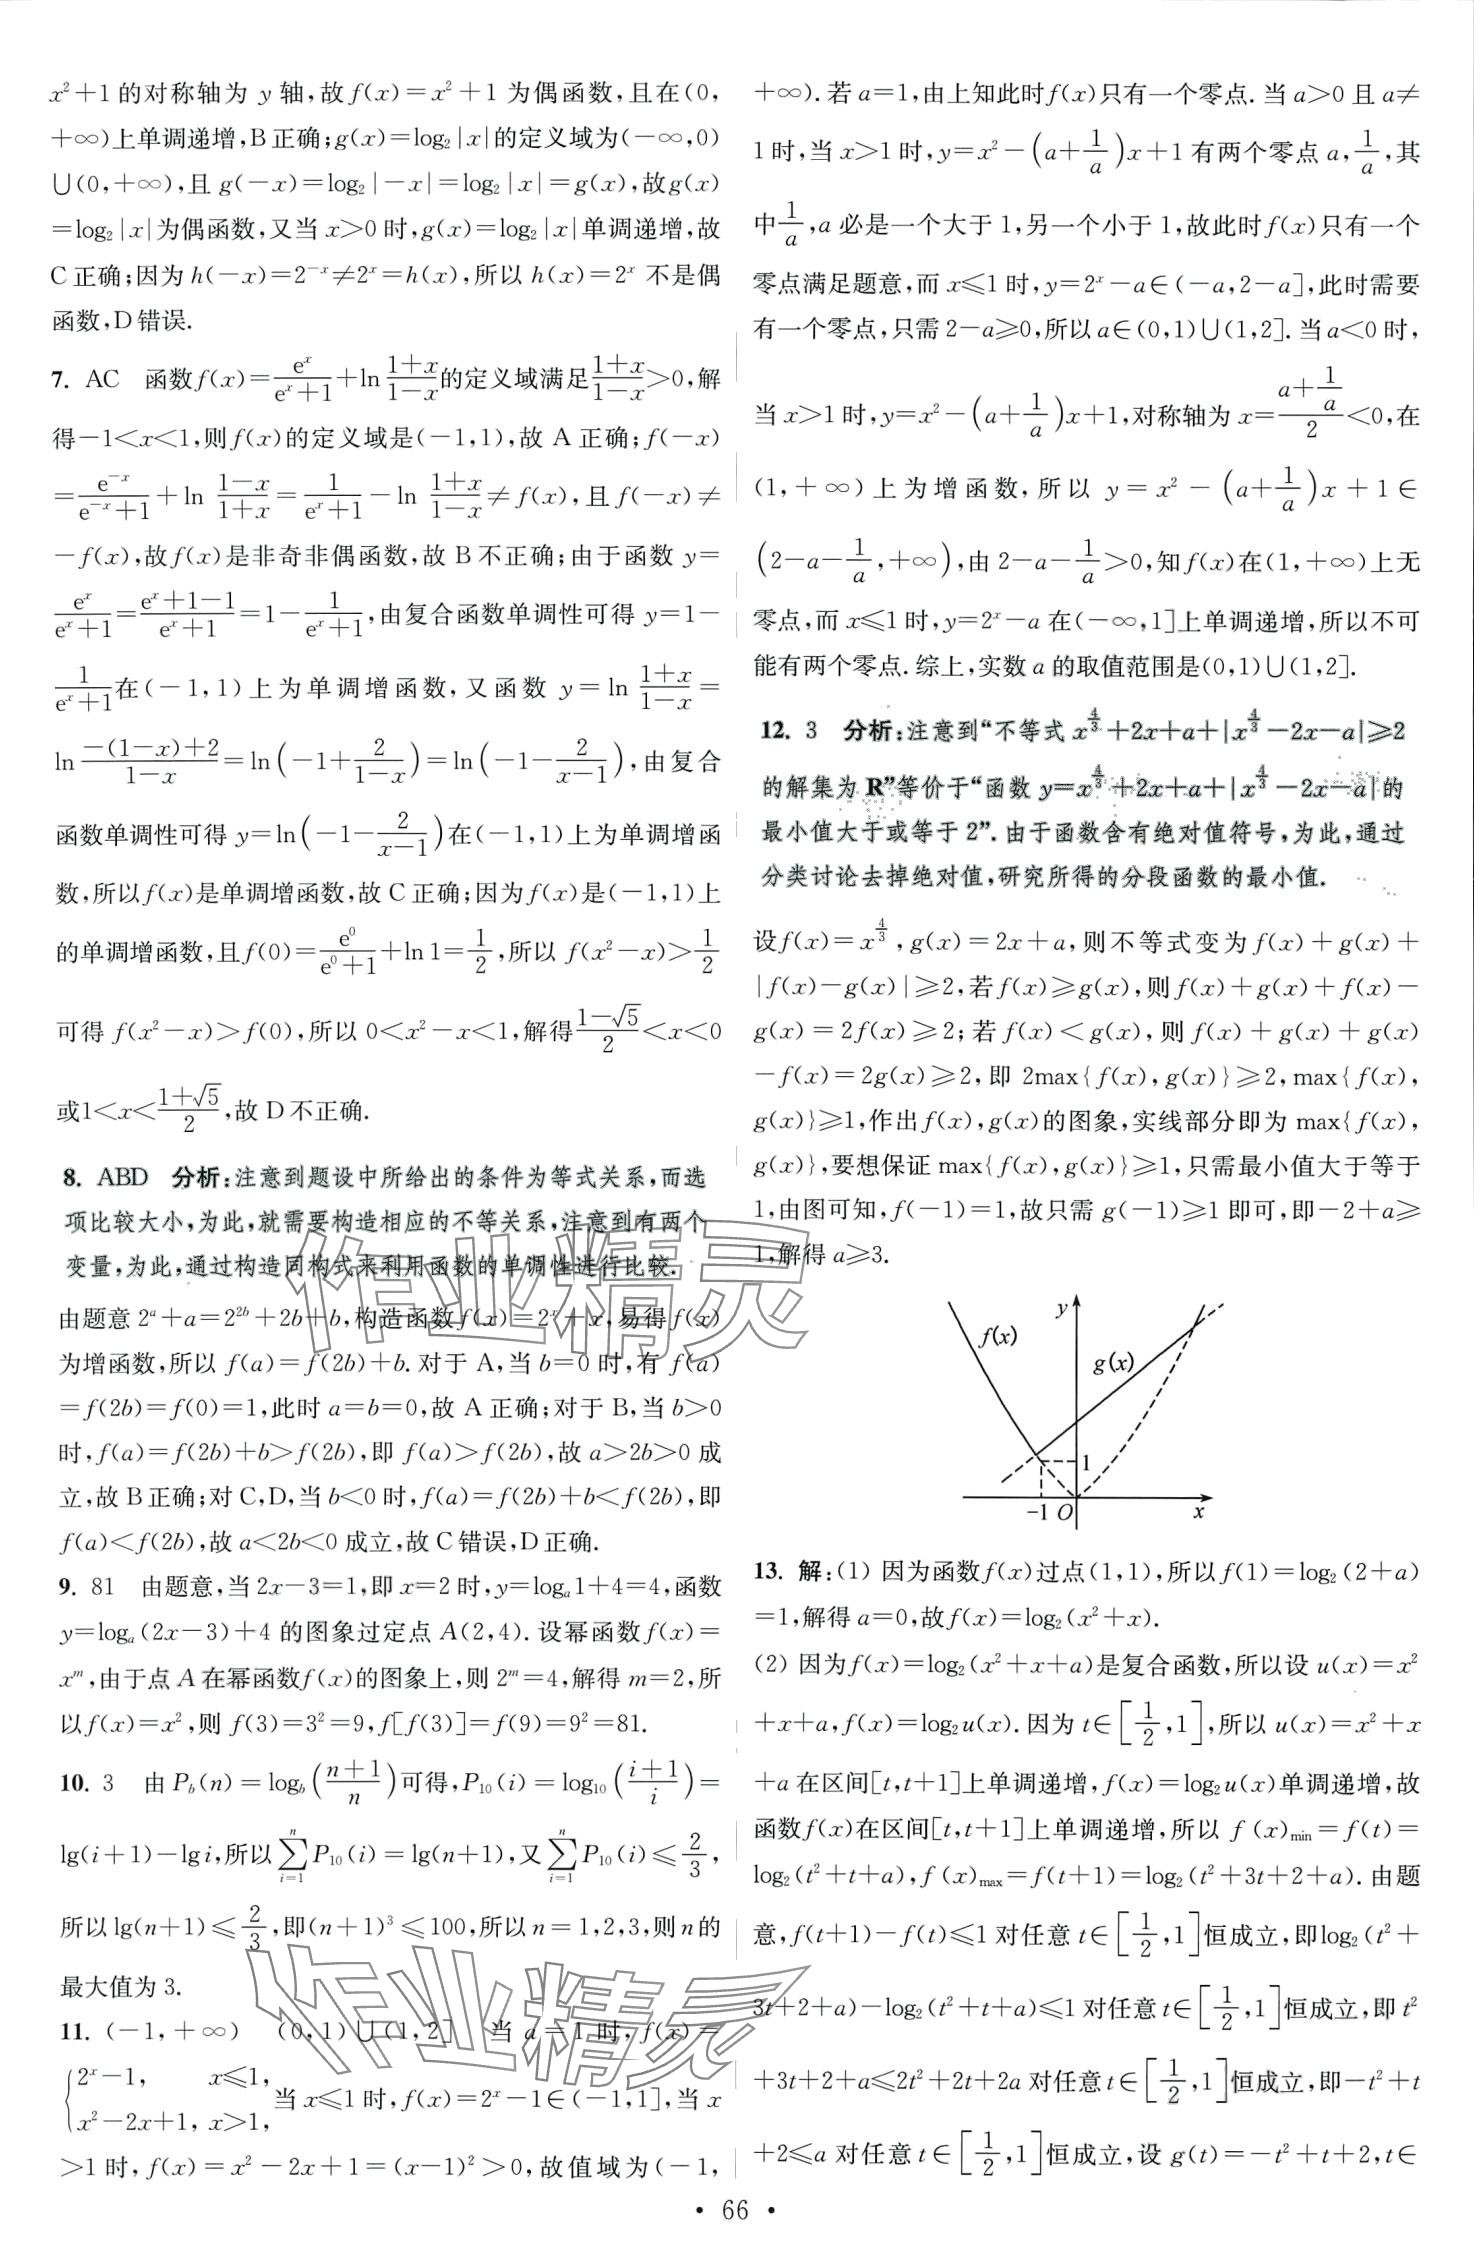 x²+1的对称轴为 y 轴,故 f(x)=x²+1 为偶函数,且在(0,
+∞)上单调递增,B正确;g(x)=log₂|x|的定义域为(-∞,0)
∪(0,+∞),且 g(-x)=log₂|-x|=log₂|x|=g(x),故g(x)
=log₂|x|为偶函数,又当 x>0 时,g(x)=log₂|x|单调递增,故
C 正确;因为 h(-x)=2^{-x}≠2^x=h(x),所以 h(x)=2^x 不是偶
函数,D 错误.
7. AC 函数 f(x)=\frac{e^x}{e^x+1}+ln\frac{1+x}{1-x}的定义域满足\frac{1+x}{1-x}>0,解
得-1<x<1,则 f(x)的定义域是(-1,1),故 A 正确;f(-x)
=\frac{e^{-x}}{e^{-x}+1}+ln \frac{1-x}{1+x}=\frac{1}{e^x+1}-ln \frac{1+x}{1-x}≠f(x),且 f(-x)≠
-f(x),故 f(x)是非奇非偶函数,故 B 不正确;由于函数 y=
\frac{e^x}{e^x+1}=\frac{e^x+1-1}{e^x+1}=1-\frac{1}{e^x+1},由复合函数单调性可得 y=1-
\frac{1}{e^x+1}在(-1,1)上为单调增函数,又函数 y=ln\frac{1+x}{1-x}=
ln\frac{-(1-x)+2}{1-x}=ln(-1+\frac{2}{1-x})=ln(-1-\frac{2}{x-1}),由复合
函数单调性可得 y=ln(-1-\frac{2}{x-1})在(-1,1)上为单调增函
数,所以 f(x)是单调增函数,故 C 正确;因为 f(x)是(-1,1)上
的单调增函数,且 f(0)=\frac{e^0}{e^0+1}+ln 1=\frac{1}{2},所以 f(x²-x)>\frac{1}{2}
可得 f(x²-x)>f(0),所以 0<x²-x<1,解得\frac{1-√5}{2}<x<0
或1<x<\frac{1+√5}{2},故 D 不正确.
8. ABD 分析:注意到题设中所给出的条件为等式关系,而选
项比较大小,为此,就需要构造相应的不等关系,注意到有两个
变量,为此,通过构造同构式来利用函数的单调性进行比较.
由题意 2^a+a=2^{2b}+2b+b,构造函数 f(x)=2^x+x,易得 f(x)
为增函数,所以 f(a)=f(2b)+b.对于 A,当 b=0 时,有 f(a)
=f(2b)=f(0)=1,此时 a=b=0,故 A 正确;对于 B,当 b>0
时,f(a)=f(2b)+b>f(2b),即 f(a)>f(2b),故 a>2b>0 成
立,故 B 正确;对 C,D,当 b<0 时,f(a)=f(2b)+b<f(2b),即
f(a)<f(2b),故 a<2b<0 成立,故 C 错误,D 正确.
9. 81 由题意,当 2x-3=1,即 x=2 时,y=log_a1+4=4,函数
y=log_a(2x-3)+4 的图象过定点 A(2,4).设幂函数 f(x)=
x^m,由于点 A 在幂函数 f(x)的图象上,则 2^m=4,解得 m=2,所
以 f(x)=x²,则 f(3)=3²=9,f[f(3)]=f(9)=9²=81.
10. 3 由 P_b(n)=log_b(\frac{n+1}{n})可得,P₁₀(i)=log₁₀(\frac{i+1}{i})=
lg(i+1)-lg i,所以\sum_{i=1}^{n}P₁₀(i)=lg(n+1),又\sum_{i=1}^{n}P₁₀(i)≤\frac{2}{3},
所以 lg(n+1)≤\frac{2}{3},即(n+1)³≤100,所以 n=1,2,3,则 n 的
最大值为 3.
11. (-1,+∞) (0,1)∪(1,2] 当 a=1 时,f(x)=
{2^x-1, x≤1,
x²-2x+1, x>1, 当 x≤1 时,f(x)=2^x-1∈(-1,1],当 x
>1 时,f(x)=x²-2x+1=(x-1)²>0,故值域为(-1,
+∞).若 a=1,由上知此时 f(x)只有一个零点.当 a>0 且 a≠
1 时,当 x>1 时,y=x²-(a+\frac{1}{a})x+1 有两个零点 a,\frac{1}{a},其
中\frac{1}{a},a 必是一个大于 1,另一个小于 1,故此时 f(x)只有一个
零点满足题意,而 x≤1 时,y=2^x-a∈(-a,2-a],此时需要
有一个零点,只需 2-a≥0,所以 a∈(0,1)∪(1,2].当 a<0 时,
当 x>1 时,y=x²-(a+\frac{1}{a})x+1,对称轴为 x=\frac{a+\frac{1}{a}}{2}<0,在
(1,+∞)上为增函数,所以 y=x²-(a+\frac{1}{a})x+1∈
(2-a-\frac{1}{a},+∞),由 2-a-\frac{1}{a}>0,知 f(x)在(1,+∞)上无
零点,而 x≤1 时,y=2^x-a 在(-∞,1]上单调递增,所以不可
能有两个零点.综上,实数 a 的取值范围是(0,1)∪(1,2].
12. 3 分析:注意到“不等式 x^{\frac{4}{3}}+2x+a+|x^{\frac{4}{3}}-2x-a|≥2
的解集为 R”等价于“函数 y=x^{\frac{4}{3}}+2x+a+|x^{\frac{4}{3}}-2x-a|的
最小值大于或等于 2”.由于函数含有绝对值符号,为此,通过
分类讨论去掉绝对值,研究所得的分段函数的最小值.
设 f(x)=x^{\frac{4}{3}},g(x)=2x+a,则不等式变为 f(x)+g(x)+
|f(x)-g(x)|≥2,若 f(x)≥g(x),则 f(x)+g(x)+f(x)-
g(x)=2f(x)≥2;若 f(x)<g(x),则 f(x)+g(x)+g(x)
-f(x)=2g(x)≥2,即 2max{f(x),g(x)}≥2,max{f(x),
g(x)}≥1,作出 f(x),g(x)的图象,实线部分即为 max{f(x),
g(x)},要想保证 max{f(x),g(x)}≥1,只需最小值大于等于
1,由图可知,f(-1)=1,故只需 g(-1)≥1 即可,即-2+a≥
1,解得 a≥3.
y
f(x)
g(x)
1
-1 O x
13. 解:(1) 因为函数 f(x)过点(1,1),所以 f(1)=log₂(2+a)
=1,解得 a=0,故 f(x)=log₂(x²+x).
(2) 因为 f(x)=log₂(x²+x+a)是复合函数,所以设 u(x)=x²
+x+a,f(x)=log₂u(x).因为 t∈[\frac{1}{2},1],所以 u(x)=x²+x
+a 在区间[t,t+1]上单调递增,f(x)=log₂u(x)单调递增,故
函数 f(x)在区间[t,t+1]上单调递增,所以 f(x)_{min}=f(t)=
log₂(t²+t+a),f(x)_{max}=f(t+1)=log₂(t²+3t+2+a).由题
意,f(t+1)-f(t)≤1 对任意 t∈[\frac{1}{2},1]恒成立,即log₂(t²+
3t+2+a)-log₂(t²+t+a)≤1 对任意 t∈[\frac{1}{2},1]恒成立,即 t²
+3t+2+a≤2t²+2t+2a 对任意 t∈[\frac{1}{2},1]恒成立,即-t²+t
+2≤a 对任意 t∈[\frac{1}{2},1]恒成立,设 g(t)=-t²+t+2,t∈
• 66 •
作业精灵
作业精灵